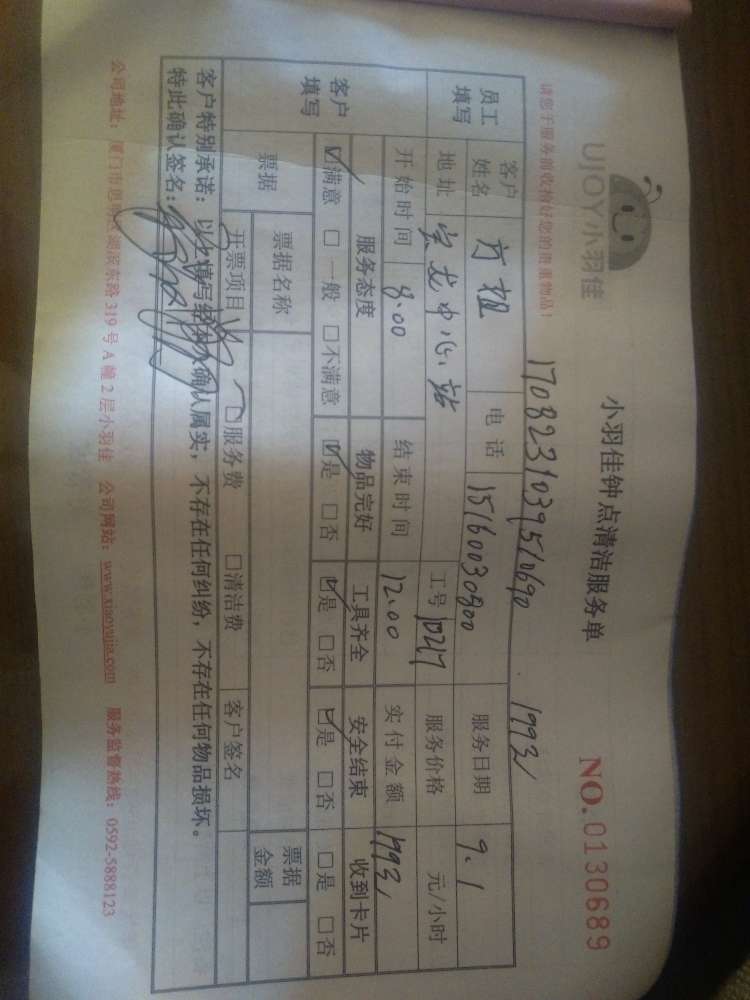 UJOY小羽佳
小羽佳钟点清洁服务单
NO.0130689
请您于服务前收拾好您的贵重物品！
1993/
员工填写 客户姓名 电话 15160030800 服务日期 9.1
地址 中心站 工号 服务价格 元/小时
开始时间 8.00 结束时间 12.00 实付金额 1993/
客户填写 服务态度 物品完好 工具齐全 安全结束 收到卡片
☑满意 □一般 □不满意 ☑是 □否 ☑是 □否 ☑是 □否 □是 □否
票据 票据名称 票据金额
开票项目 □服务费 □清洁费 客户签名
客户特别承诺：以上填写经本人确认属实，不存在任何纠纷，不存在任何物品损坏。
特此确认签名：
公司地址：厦门市思明区湖滨东路319号A幢2层小羽佳 公司网站：www.xiaoyujia.com 服务监督热线：0592-5888123